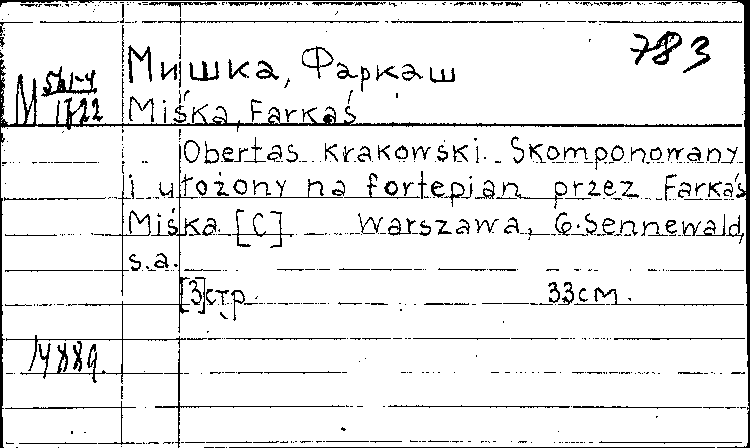 783
Мишка, Фаркаш
М 561-4
1722
Miśka, Farkaś
Obertas krakowski. Skomponowany
i ułożony na fortepian przez Farkaś
Miśka [C] Warszawa, G. Sennewald,
s.a.
[3] стр. 33 см.
1488g.